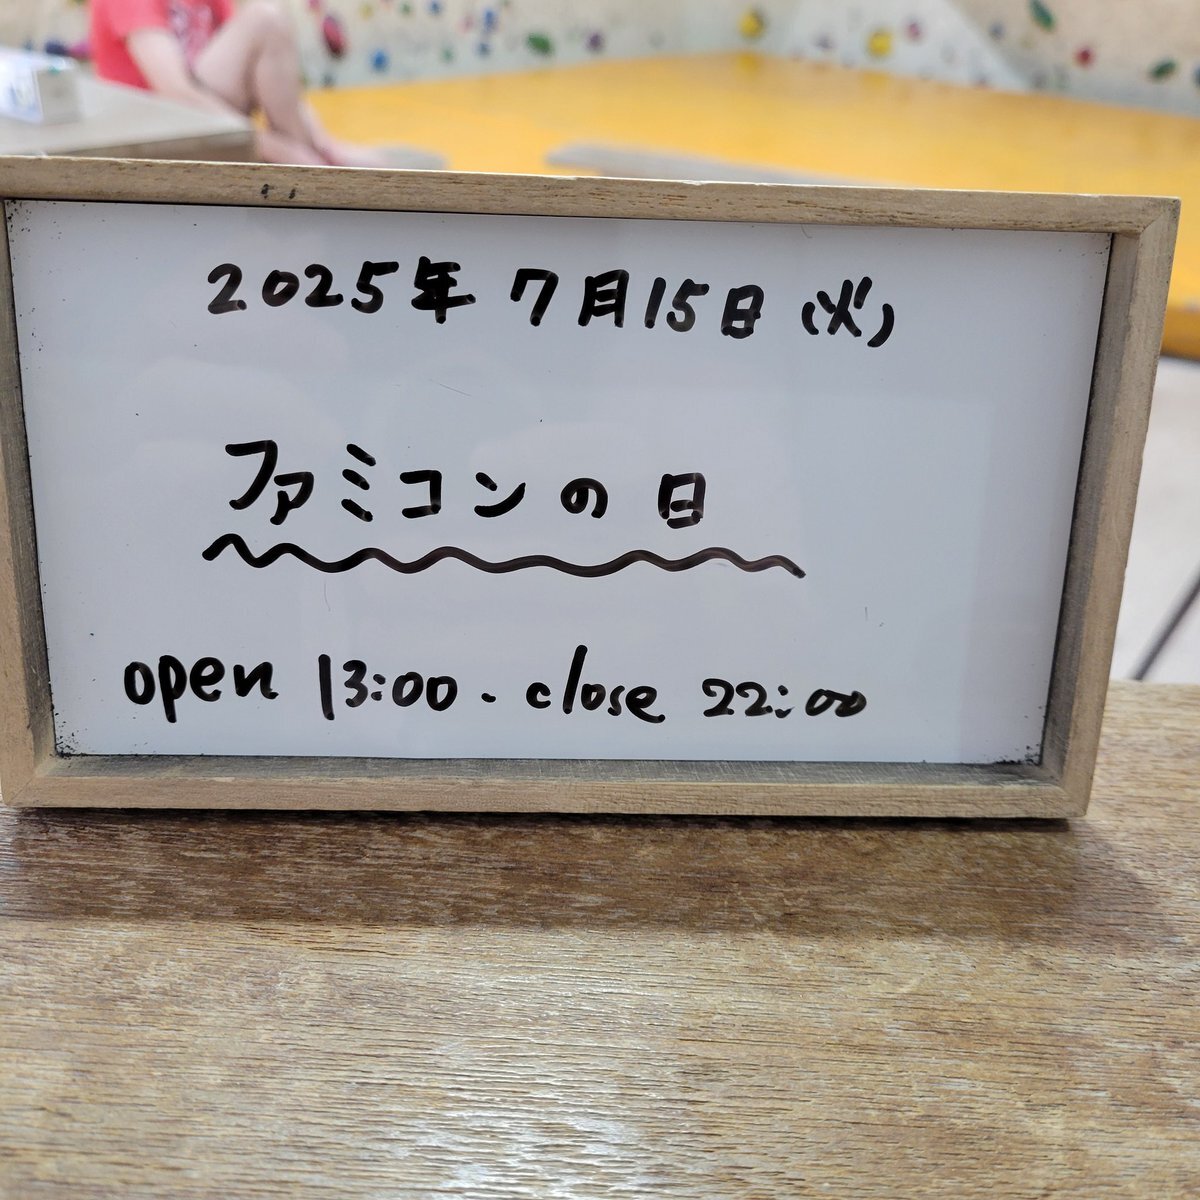 2025年 7月15日 (火)
ファミコンの日
open 13:00 - close 22:00